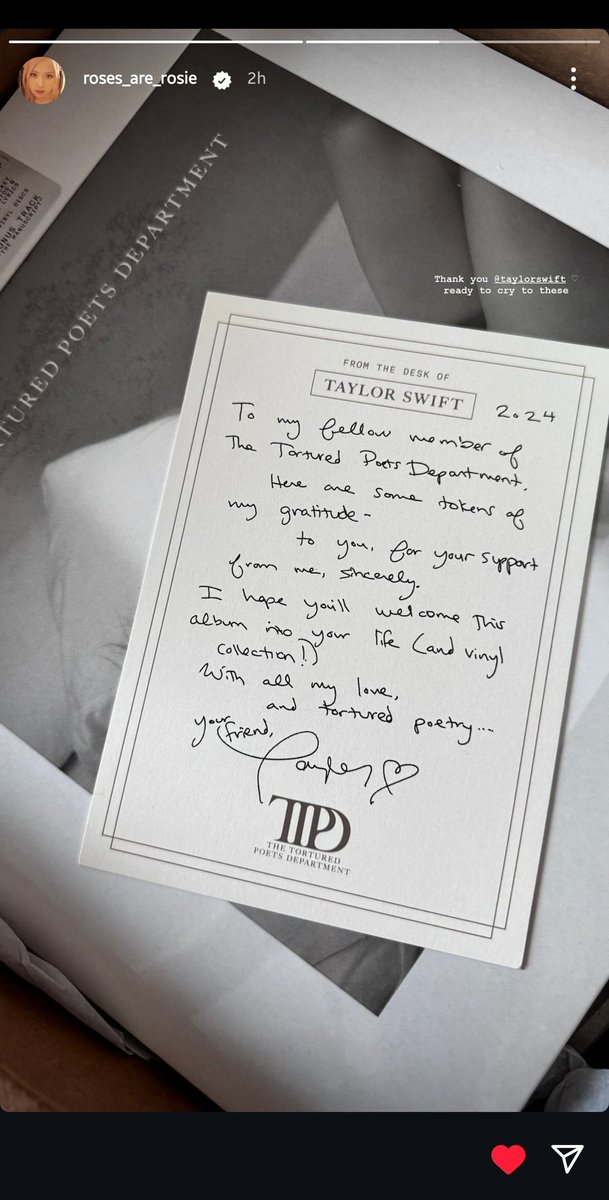 roses_are_rosie 2h
LYRICS
VINYL DISCS
ONUS TRACK
THE MANUSCRIPT
RTURED POETS DEPARTMENT
Thank you @taylorswift ♡
ready to cry to these
FROM THE DESK OF
TAYLOR SWIFT
2024
To my fellow member of
The Tortured Poets Department.
Here are some tokens of
my gratitude -
to you, for your support
from me, sincerely.
I hope you'll welcome this
album into your life (and vinyl
collection!)
With all my love,
and tortured poetry...
your friend,
Taylor ♡
TTPD
THE TORTURED
POETS DEPARTMENT